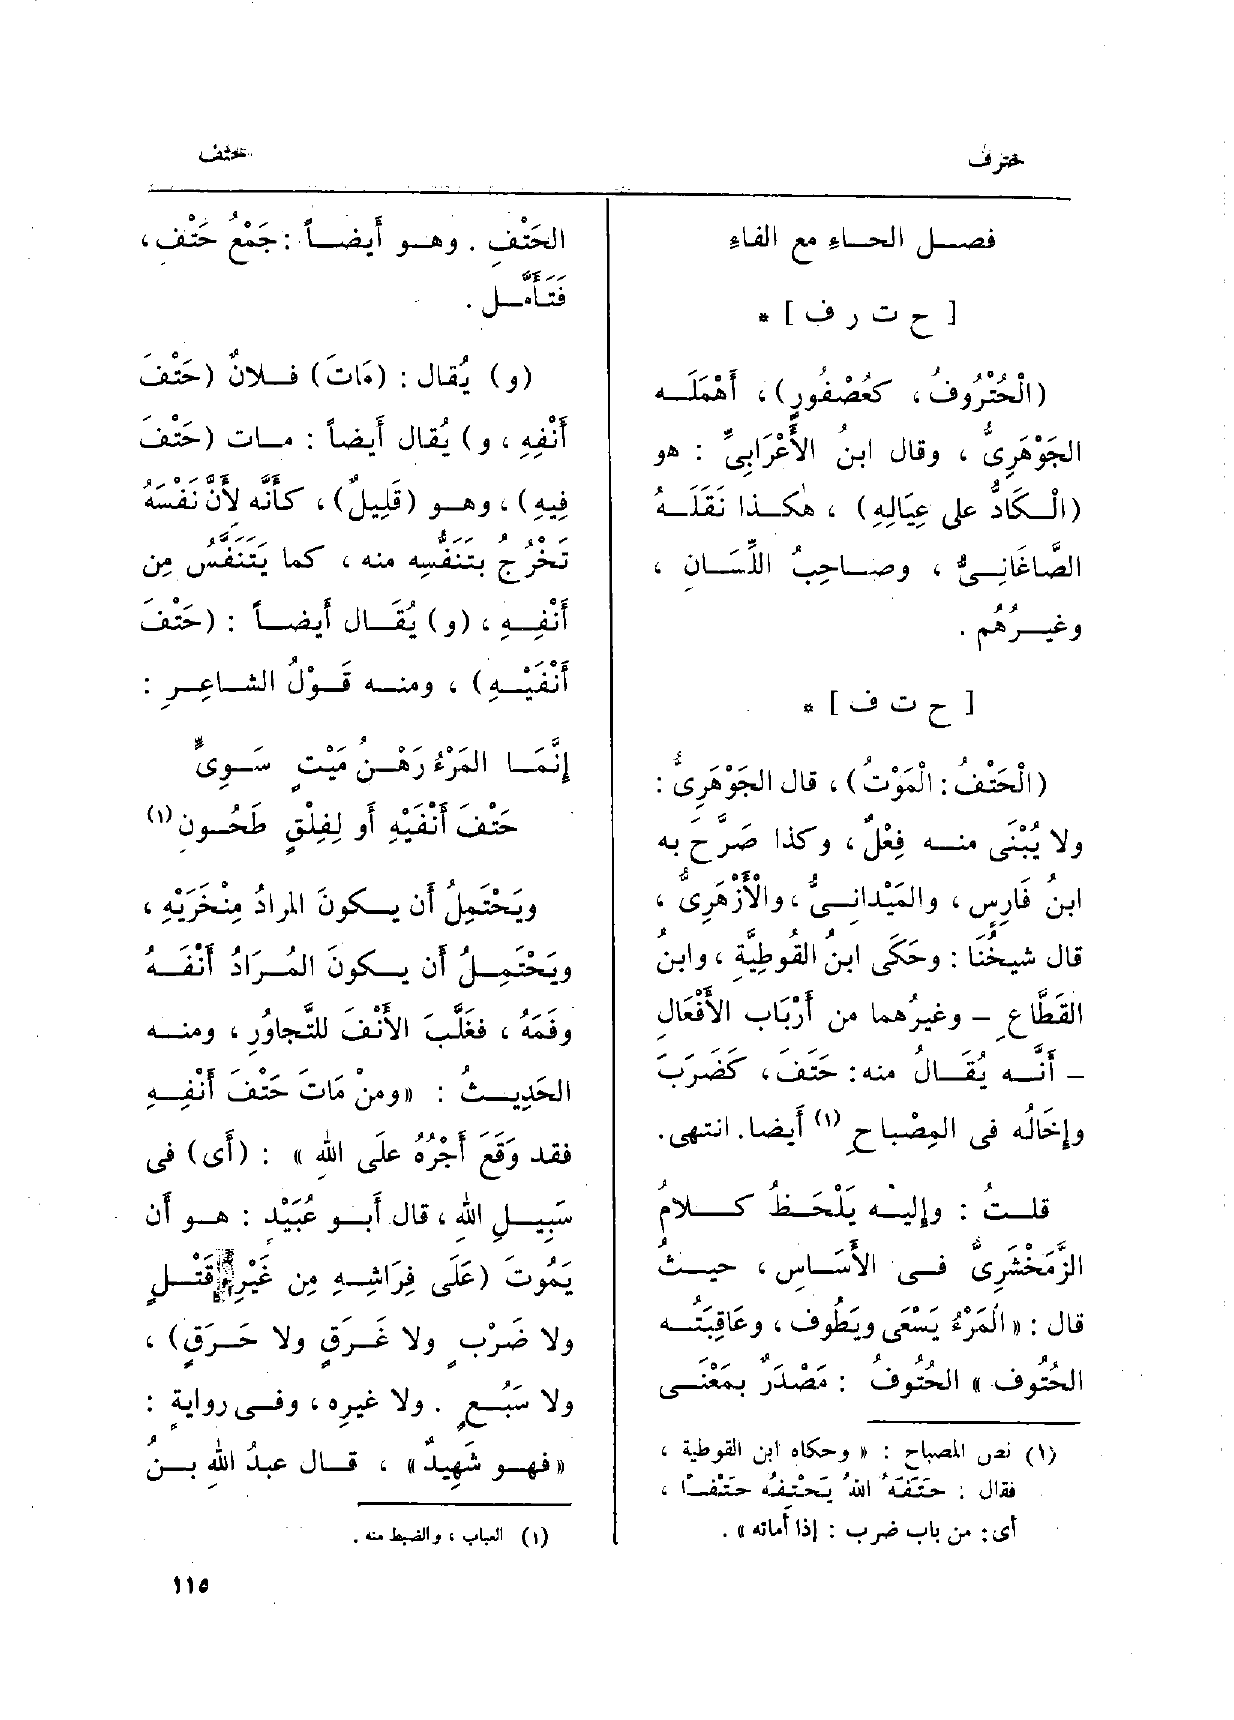 حترف
حتف
فصل الحاء مع الفاء
[ ح ت ر ف ] *
(الْحُتْرُوفُ ، كَعُصْفُورٍ) ، أَهْمَلَه
الجَوْهَرِىُّ ، وقال ابنُ الأَعْرَابِىِّ : هو
(الْكَادُّ على عِيَالِهِ) ، هٰكذا نَقَلَهُ
الصَّاغَانِىُّ ، وصاحِبُ اللِّسَانِ ،
وغيرُهُم .
[ ح ت ف ] *
(الْحَتْفُ : الْمَوْتُ) ، قال الجَوْهَرِىُّ :
ولا يُبْنَى منه فِعْلٌ ، وكذا صَرَّح به
ابنُ فَارِسٍ ، والمَيْدانِىُّ ، والْأَزْهَرِىُّ ،
قال شيخُنَا : وحَكَى ابنُ القُوطِيَّةِ ، وابنُ
القَطَّاعِ – وغيرُهما من أَرْبَابِ الأَفْعَالِ
– أَنَّه يُقَالُ منه : حَتَفَ ، كَضَرَبَ
وإِخَالُه فى المِصْباحِ (١) أيضا . انتهى.
قلتُ : وإِليْه يَلْحَظُ كَلامُ
الزَّمَخْشَرِىِّ فى الأَسَاسِ ، حيثُ
قال : « الْمَرْءُ يَسْعَى ويَطُوف ، وعَاقِبَتُه
الحُتُوف » الحُتُوفُ : مَصْدَرٌ بمَعْنَى
(١) نص المصباح : « وحكاه ابن القوطية ،
فقال : حَتَفَهُ اللهُ يَحْتِفُهُ حَتْفًا ،
أى : من باب ضرب : إذا أماته » .
الحَتْفِ . وهو أَيضاً : جَمْعُ حَتْفٍ ،
فَتَأَمَّل .
(و) يُقال : (مَاتَ) فلانٌ (حَتْفَ
أَنْفِهِ ، و) يُقال أَيضاً : مات (حَتْفَ
فِيهِ) ، وهو (قَلِيلٌ) ، كأَنَّه لأَنَّ نَفْسَهُ
تَخْرُج بتَنَفُّسِه منه ، كما يَتَنَفَّس مِن
أَنْفِهِ ، (و) يُقَال أَيضاً : (حَتْفَ
أَنْفَيْهِ) ، ومنه قَوْلُ الشاعِرِ :
إِنَّمَا المَرْءُ رَهْنُ مَيْتٍ سَوِىٍّ
حَتْفَ أَنْفَيْهِ أَو لِفِلْقٍ طَحُونِ (١)
ويَحْتَمِلُ أَن يكونَ المرادُ مِنْخَرَيْهِ ،
ويَحْتَمِلُ أَن يكونَ المُرَادُ أَنْفَهُ
وفَمَهُ ، فغَلَّبَ الأَنْفَ للتَّجاوُرِ ، ومنه
الحَدِيثُ : « ومنْ مَاتَ حَتْفَ أَنْفِهِ
فقد وَقَعَ أَجْرُهُ علَى اللهِ » : (أَى) فى
سَبِيلِ اللهِ ، قال أَبو عُبَيْدٍ : هو أَن
يَمُوتَ (عَلَى فِرَاشِهِ مِن غَيْرِ قَتْلٍ
ولا ضَرْبٍ ولا غَرَقٍ ولا حَرَقٍ) ،
ولا سَبُعٍ . ولا غيرِه ، وفى روايةٍ :
« فهو شَهِيدٌ » ، قال عبدُ اللهِ بنُ
(١) العباب ، والضبط منه .
١١٥